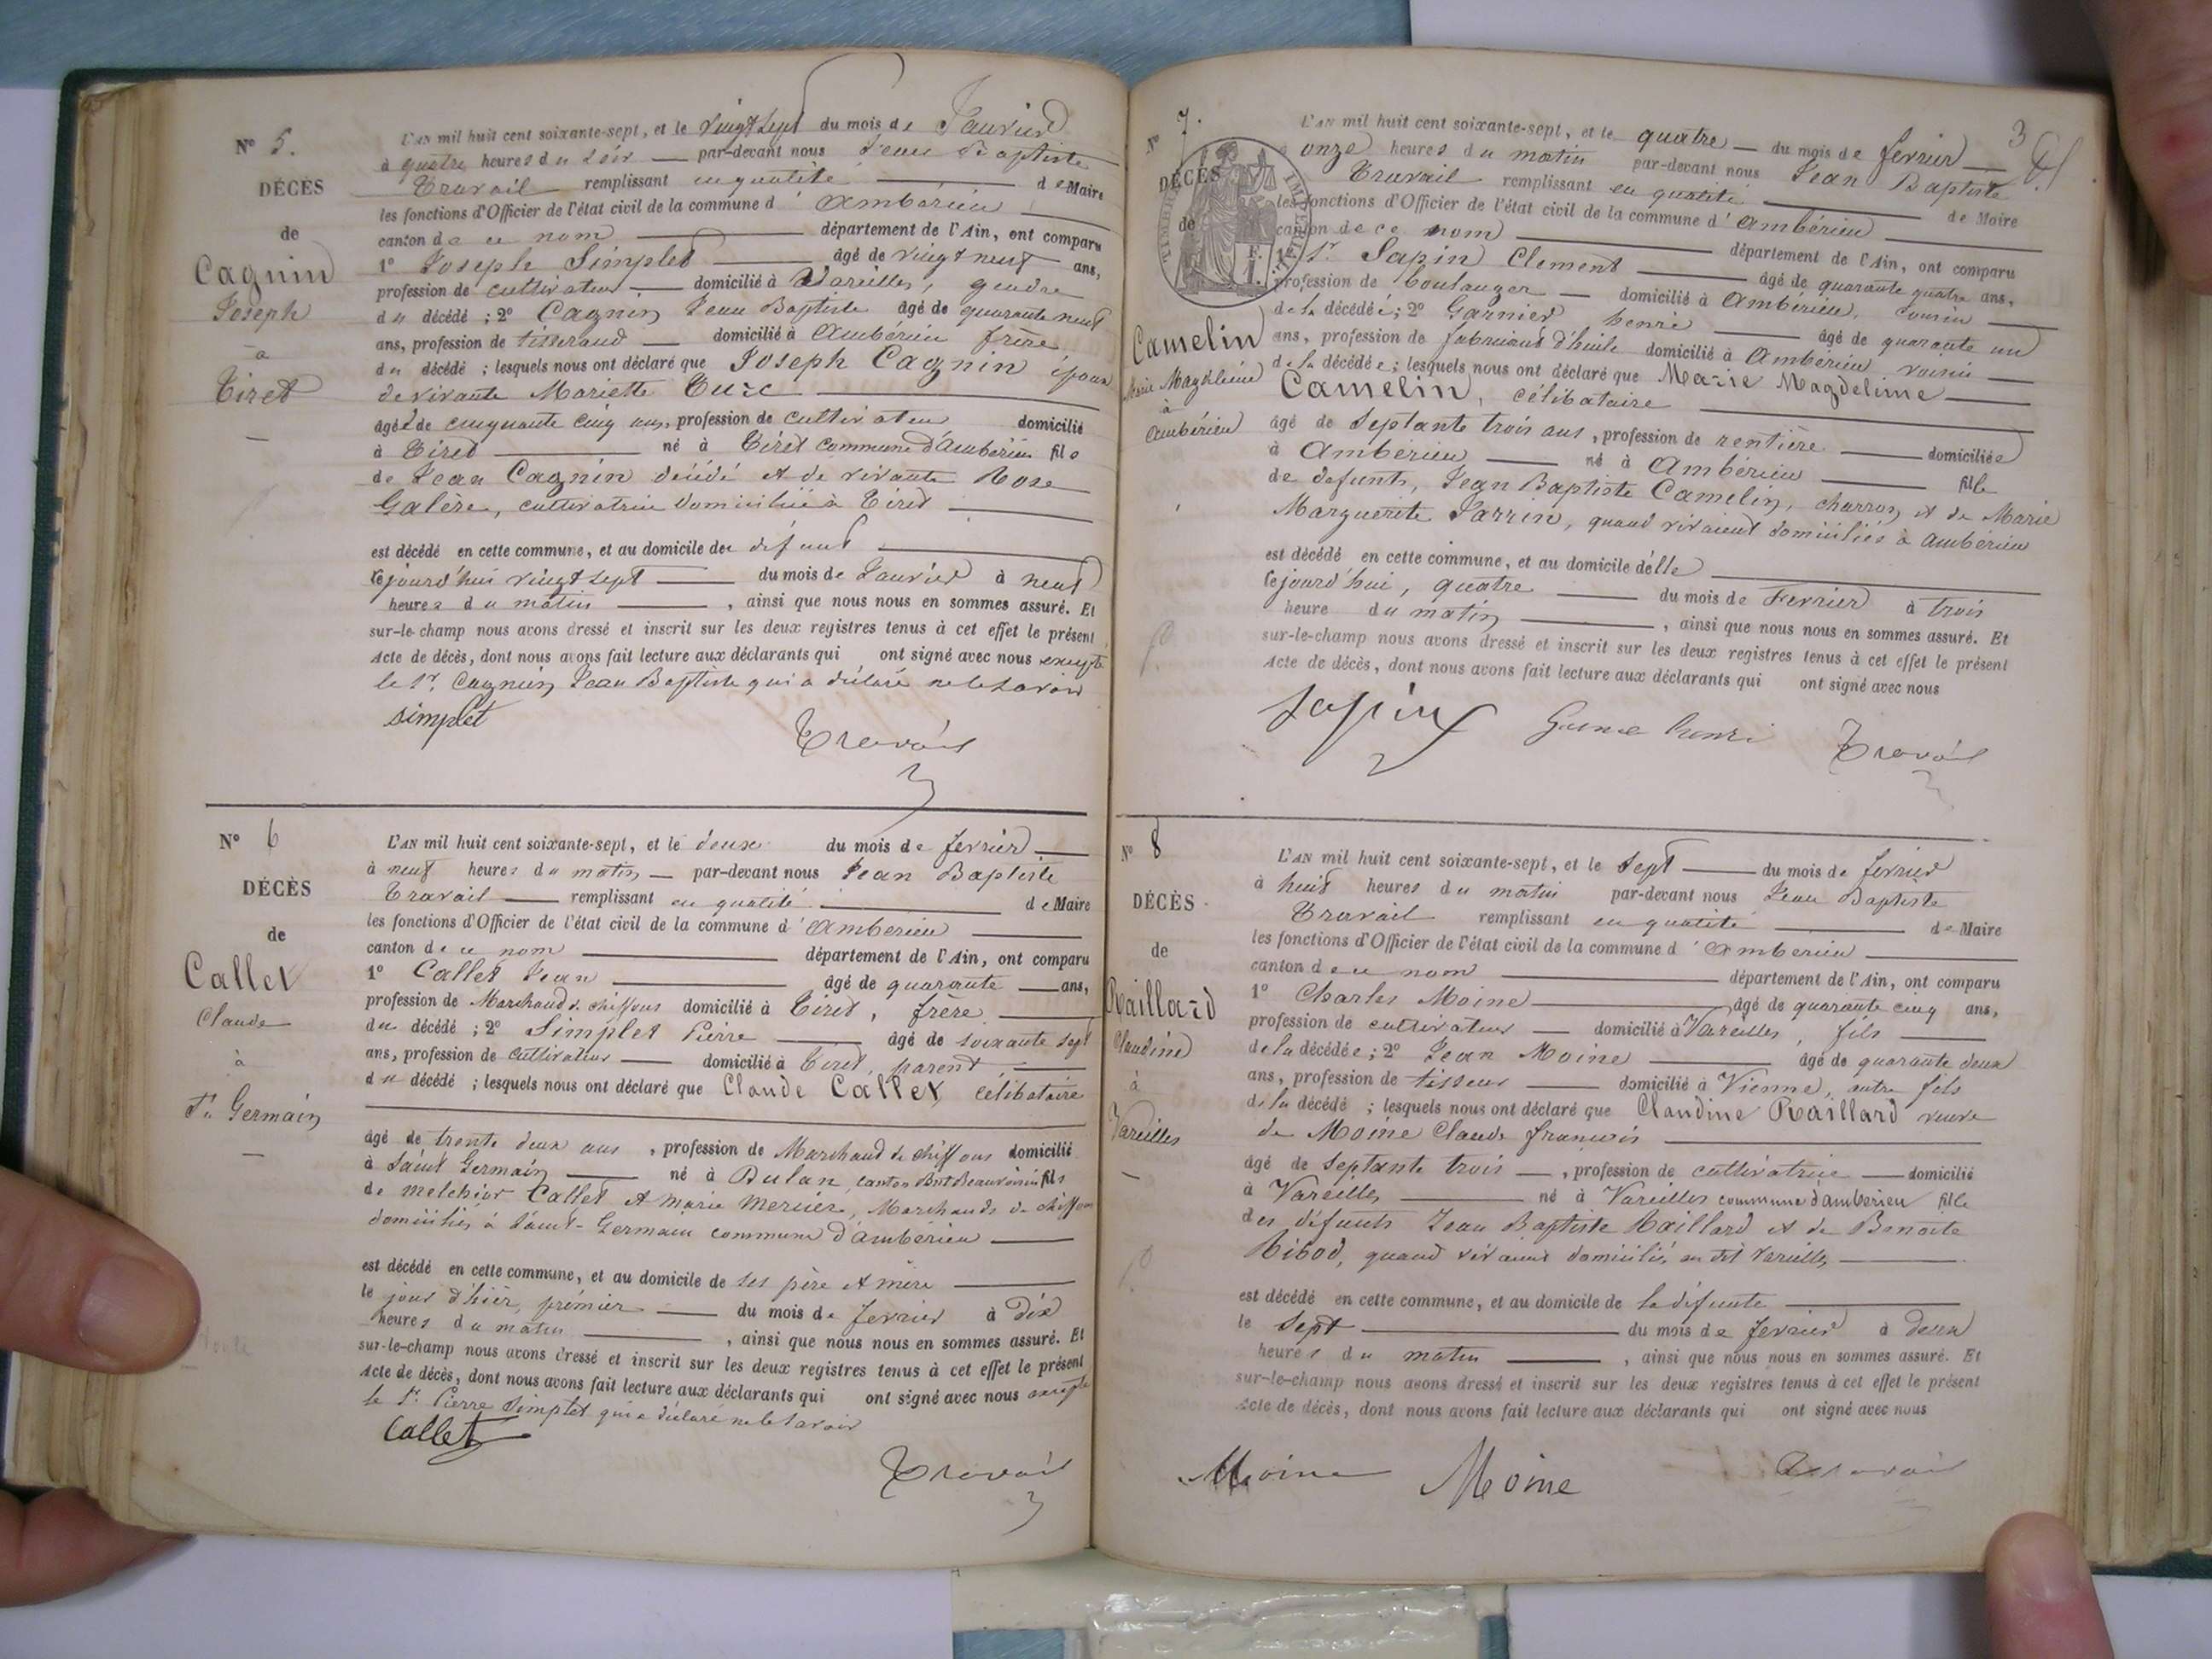 N° 5.
DÉCÈS
de
Cagnin
Joseph
à
Tiret
L'AN mil huit cent soixante-sept, et le vingt sept du mois de Janvier
à quatre heures du soir par-devant nous Jean Baptiste
Travail remplissant en qualité de Maire
les fonctions d'Officier de l'état civil de la commune d'Ambérieu
canton de ce nom département de l'Ain, ont comparu
1° Joseph Simplet âgé de vingt neuf ans,
profession de cultivateur domicilié à Vareilles, gendre
du décédé ; 2° Cagnin Jean Baptiste âgé de quarante neuf
ans, profession de tisserand domicilié à Ambérieu frère
du décédé ; lesquels nous ont déclaré que Joseph Cagnin époux
de vivante Mariette
âgé de cinquante cinq ans, profession de cultivateur domicilié
à Tiret né à Tiret commune d'Ambérieu fils
de Jean Cagnin décédé et de vivante Rose
Galère, cultivatrice domiciliée à Tiret
est décédé en cette commune, et au domicile du défunt
cejourd'hui vingt sept du mois de Janvier à neuf
heures du matin , ainsi que nous nous en sommes assuré. Et
sur-le-champ nous avons dressé et inscrit sur les deux registres tenus à cet effet le présent
Acte de décès, dont nous avons fait lecture aux déclarants qui ont signé avec nous excepté
le Sr. Cagnin Jean Baptiste qui a déclaré ne le savoir
simplet
Travail
N° 6
DÉCÈS
de
Callet
Claude
à
St. Germain
L'AN mil huit cent soixante-sept, et le deux du mois de fevrier
à neuf heures du matin par-devant nous Jean Baptiste
Travail remplissant en qualité de Maire
les fonctions d'Officier de l'état civil de la commune d'Amberieu
canton de ce nom département de l'Ain, ont comparu
1° Callet Jean âgé de quarante ans,
profession de Marchand de chiffons domicilié à Tiret, frère
du décédé ; 2° Simplet Pierre âgé de soixante sept
ans, profession de cultivateur domicilié à Tiret, parent
du décédé ; lesquels nous ont déclaré que Claude Callet, célibataire
âgé de trente deux ans , profession de Marchand de chiffons domicilié
à Saint Germain né à Dulan, canton fils
de Melchior Callet et Marie Mercier, Marchands de chiffons
domiciliés à Saint-Germain commune d'Ambérieu
est décédé en cette commune, et au domicile de ses père et mère
le jour d'hier, prémier du mois de fevrier à dix
heures du matin , ainsi que nous nous en sommes assuré. Et
sur-le-champ nous avons dressé et inscrit sur les deux registres tenus à cet effet le présent
Acte de décès, dont nous avons fait lecture aux déclarants qui ont signé avec nous excepté
le Sr. Pierre Simplet qui a déclaré ne le savoir
Callet
Travail
3
N° 7.
DÉCÈS
de
TIMBRE IMPERIAL
Camelin
Marie Magdeleine
à
Ambérieu
L'AN mil huit cent soixante-sept, et le quatre du mois de fevrier
à onze heures du matin par-devant nous Jean Baptiste
Travail remplissant en qualité de Maire
les fonctions d'Officier de l'état civil de la commune d'Ambérieu
canton de ce nom département de l'Ain, ont comparu
1° Sr. Sapin Clement âgé de quarante quatre ans,
profession de boulanger domicilié à Ambérieu, cousin
de la décédée ; 2° Garnier henri âgé de quarante un
ans, profession de fabricant d'huile domicilié à Ambérieu voisin
de la décédée ; lesquels nous ont déclaré que Marie Magdeleine
Camelin, célibataire
âgé de septante trois ans, profession de rentière domiciliée
à Ambérieu né à Ambérieu fille
de defunts, Jean Baptiste Camelin, charron et de Marie
Marguerite Sarrin, quand vivaient domiciliés à Ambérieu
est décédé en cette commune, et au domicile d'elle
cejourd'hui, quatre du mois de Fevrier à trois
heure du matin , ainsi que nous nous en sommes assuré. Et
sur-le-champ nous avons dressé et inscrit sur les deux registres tenus à cet effet le présent
Acte de décès, dont nous avons fait lecture aux déclarants qui ont signé avec nous
Sapin henri Travail
N° 8
DÉCÈS
de
Raillard
Claudine
à
Vareilles
L'AN mil huit cent soixante-sept, et le sept du mois de fevrier
à huit heures du matin par-devant nous Jean Baptiste
Travail remplissant en qualité de Maire
les fonctions d'Officier de l'état civil de la commune d'Amberieu
canton de ce nom département de l'Ain, ont comparu
1° Charles Moine âgé de quarante cinq ans,
profession de cultivateur domicilié à Vareilles, fils
de la décédée ; 2° Jean Moine âgé de quarante deux
ans, profession de tisseur domicilié à Vienne, autre fils
de la décédé ; lesquels nous ont déclaré que Claudine Raillard veuve
de Moine Claude françois
âgé de septante trois , profession de cultivatrice domicilié
à Vareilles né à Vareilles commune d'amberieu fille
des défunts Jean Baptiste Raillard et de Benoite
Ribod, quand vivaient domiciliés au dit Vareilles
est décédé en cette commune, et au domicile de la défunte
le sept du mois de fevrier à deux
heures du matin , ainsi que nous nous en sommes assuré. Et
sur-le-champ nous avons dressé et inscrit sur les deux registres tenus à cet effet le présent
Acte de décès, dont nous avons fait lecture aux déclarants qui ont signé avec nous
Moine Moine Travail